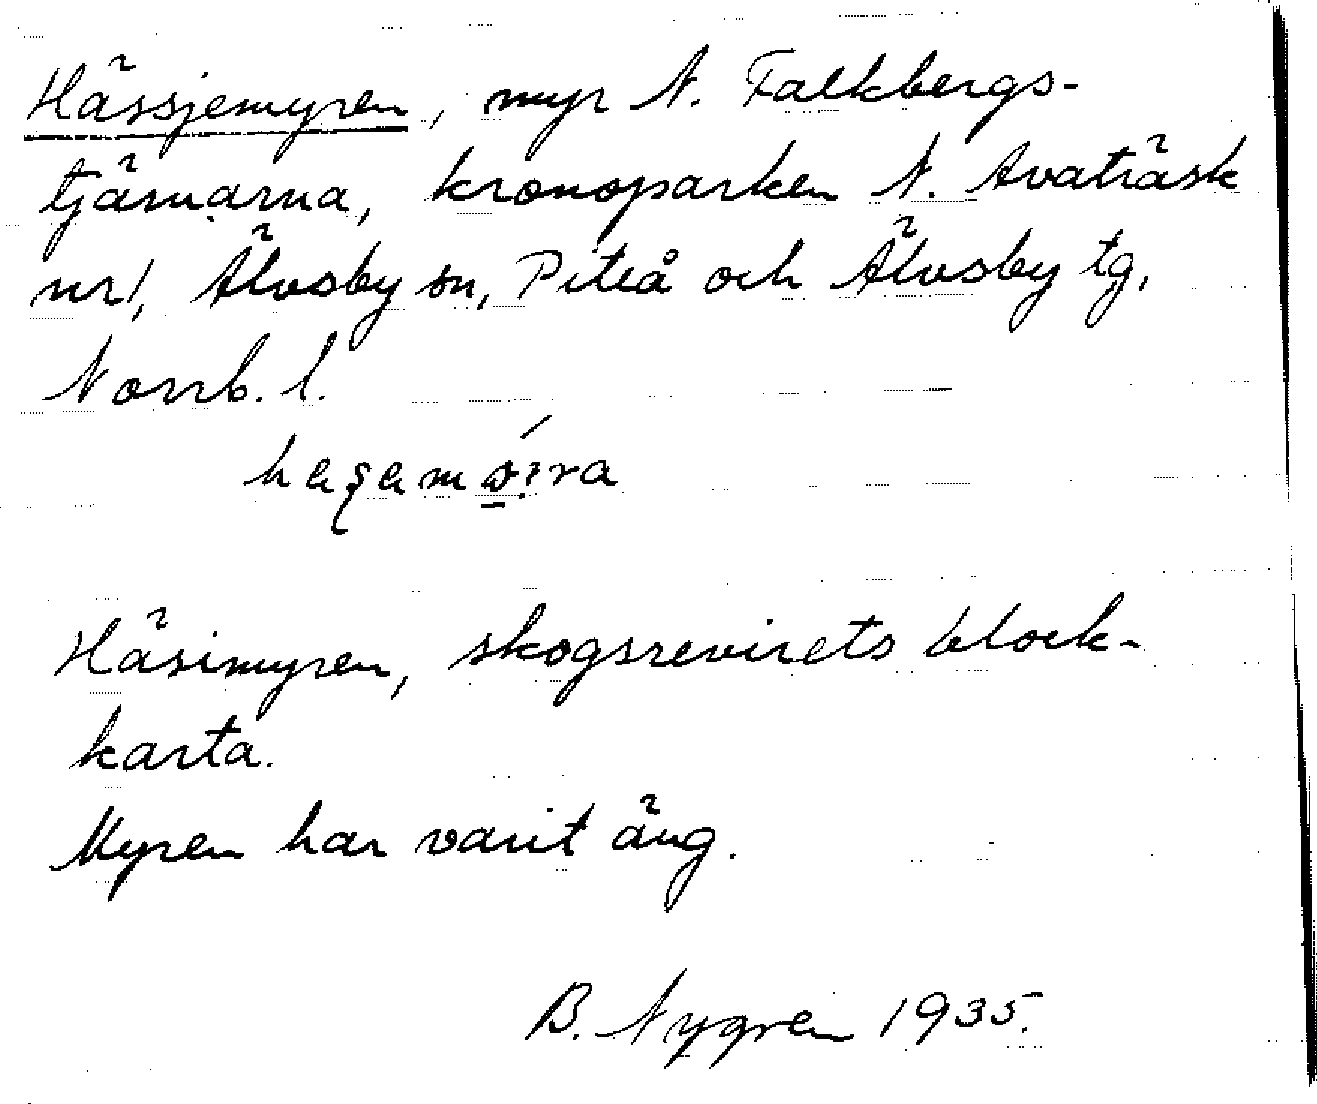 Hässjemyren, myr N. Falkbergs-
tjärnarna, kronoparken N. Avaträsk
nr 1, Älvsby sn, Piteå och Älvsby tg,
Norrb. l.
Häsimyren, skogsrevirets block-
karta.
Myren har varit äng.
B. Nygren 1935.